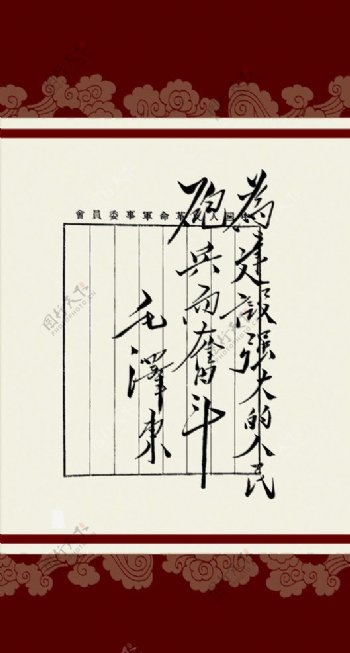 為建設强大的人民
砲兵而奮斗
毛澤東
會員委事軍命革